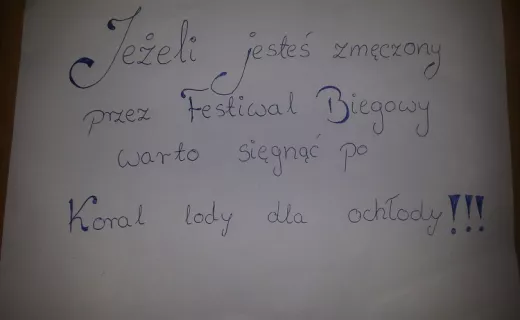 Jeżeli jesteś zmęczony
przez Festiwal Biegowy
warto sięgnąć po
Koral lody dla ochłody!!!